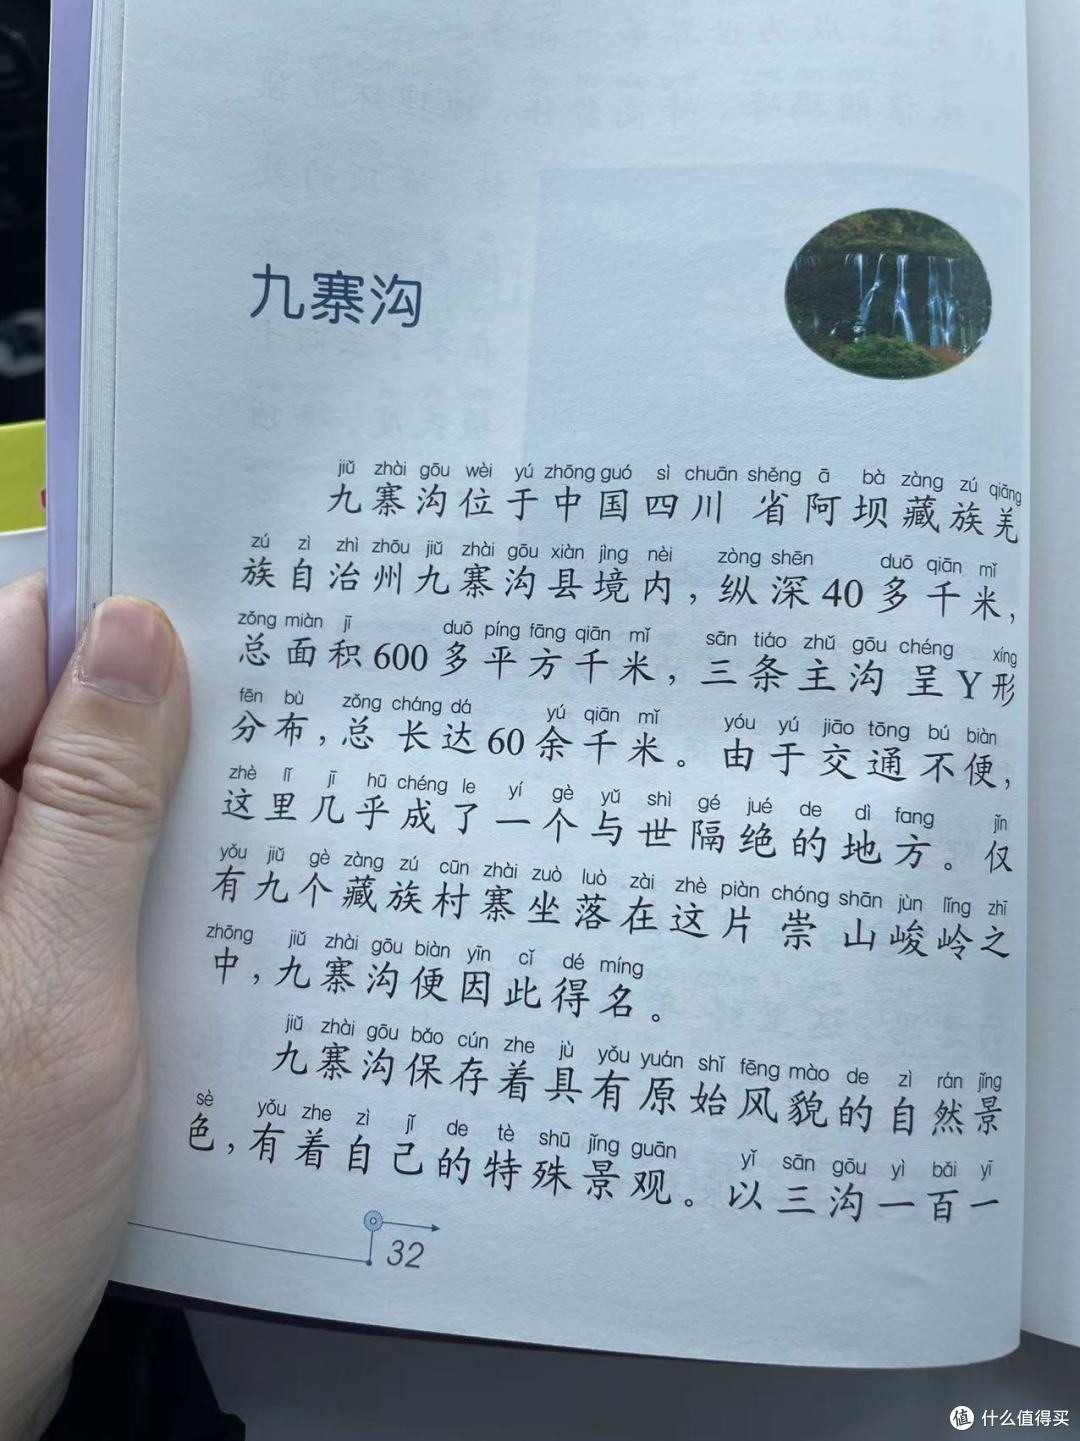 九寨沟
jiǔ zhài gōu wèi yú zhōng guó sì chuān shěng ā bà zàng zú qiāng
九寨沟位于中国四川省阿坝藏族羌
zú zì zhì zhōu jiǔ zhài gōu xiàn jìng nèi zòng shēn duō qiān mǐ
族自治州九寨沟县境内，纵深40多千米，
zǒng miàn jī duō píng fāng qiān mǐ sān tiáo zhǔ gōu chéng xíng
总面积600多平方千米，三条主沟呈Y形
fēn bù zǒng cháng dá yú qiān mǐ yóu yú jiāo tōng bú biàn
分布，总长达60余千米。由于交通不便，
zhè lǐ jī hū chéng le yí gè yǔ shì gé jué de dì fang jǐn
这里几乎成了一个与世隔绝的地方。仅
yǒu jiǔ gè zàng zú cūn zhài zuò luò zài zhè piàn chóng shān jùn lǐng zhī
有九个藏族村寨坐落在这片崇山峻岭之
zhōng jiǔ zhài gōu biàn yīn cǐ dé míng
中，九寨沟便因此得名。
jiǔ zhài gōu bǎo cún zhe jù yǒu yuán shǐ fēng mào de zì rán jǐng
九寨沟保存着具有原始风貌的自然景
sè yǒu zhe zì jǐ de tè shū jǐng guān yǐ sān gōu yì bǎi yī
色，有着自己的特殊景观。以三沟一百一
32
值 什么值得买